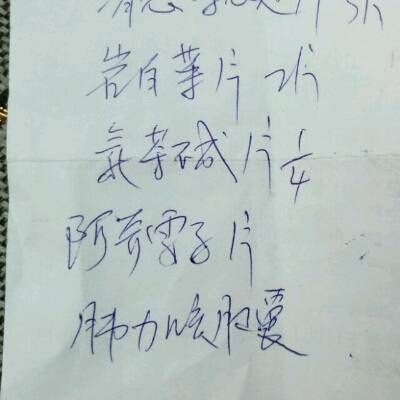 片 3片
岩白菜片 2片
氨茶碱片 1/4
阿奇霉子片
肺力咳胶囊